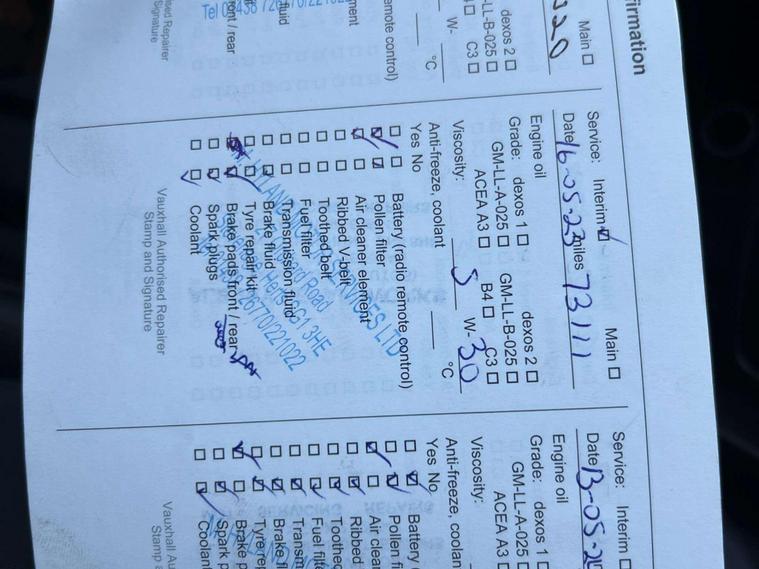 firmation
Main
320
dexos 2
LL-B-025
C3
W-
°C
emote control)
ment
fluid
ont / rear
sed Repairer
Signature
Service: Interim Main
Date 16-05-23 miles 73111
Engine oil
Grade: dexos 1 dexos 2
GM-LL-A-025 GM-LL-B-025
ACEA A3 B4 C3
Viscosity: 5 W- 30
Anti-freeze, coolant °C
Yes No
Battery (radio remote control)
Pollen filter
Air cleaner element
Ribbed V-belt
Toothed belt
Fuel filter
Transmission fluid
Brake fluid
Tyre repair kit
Brake pads front / rear
Spark plugs
Coolant
SERVICES LTD
Road
SG1 3HE
221022
Vauxhall Authorised Repairer
Stamp and Signature
Service: Interim
Date 13-05-2
Engine oil
Grade: dexos 1
GM-LL-A-025
ACEA A3
Viscosity:
Anti-freeze, coolan
Yes No
Battery
Pollen fi
Air clean
Ribbed
Toothed
Fuel filte
Transm
Brake fl
Tyre rep
Brake p
Spark p
Coolant
Vauxhall Au
Stamp a